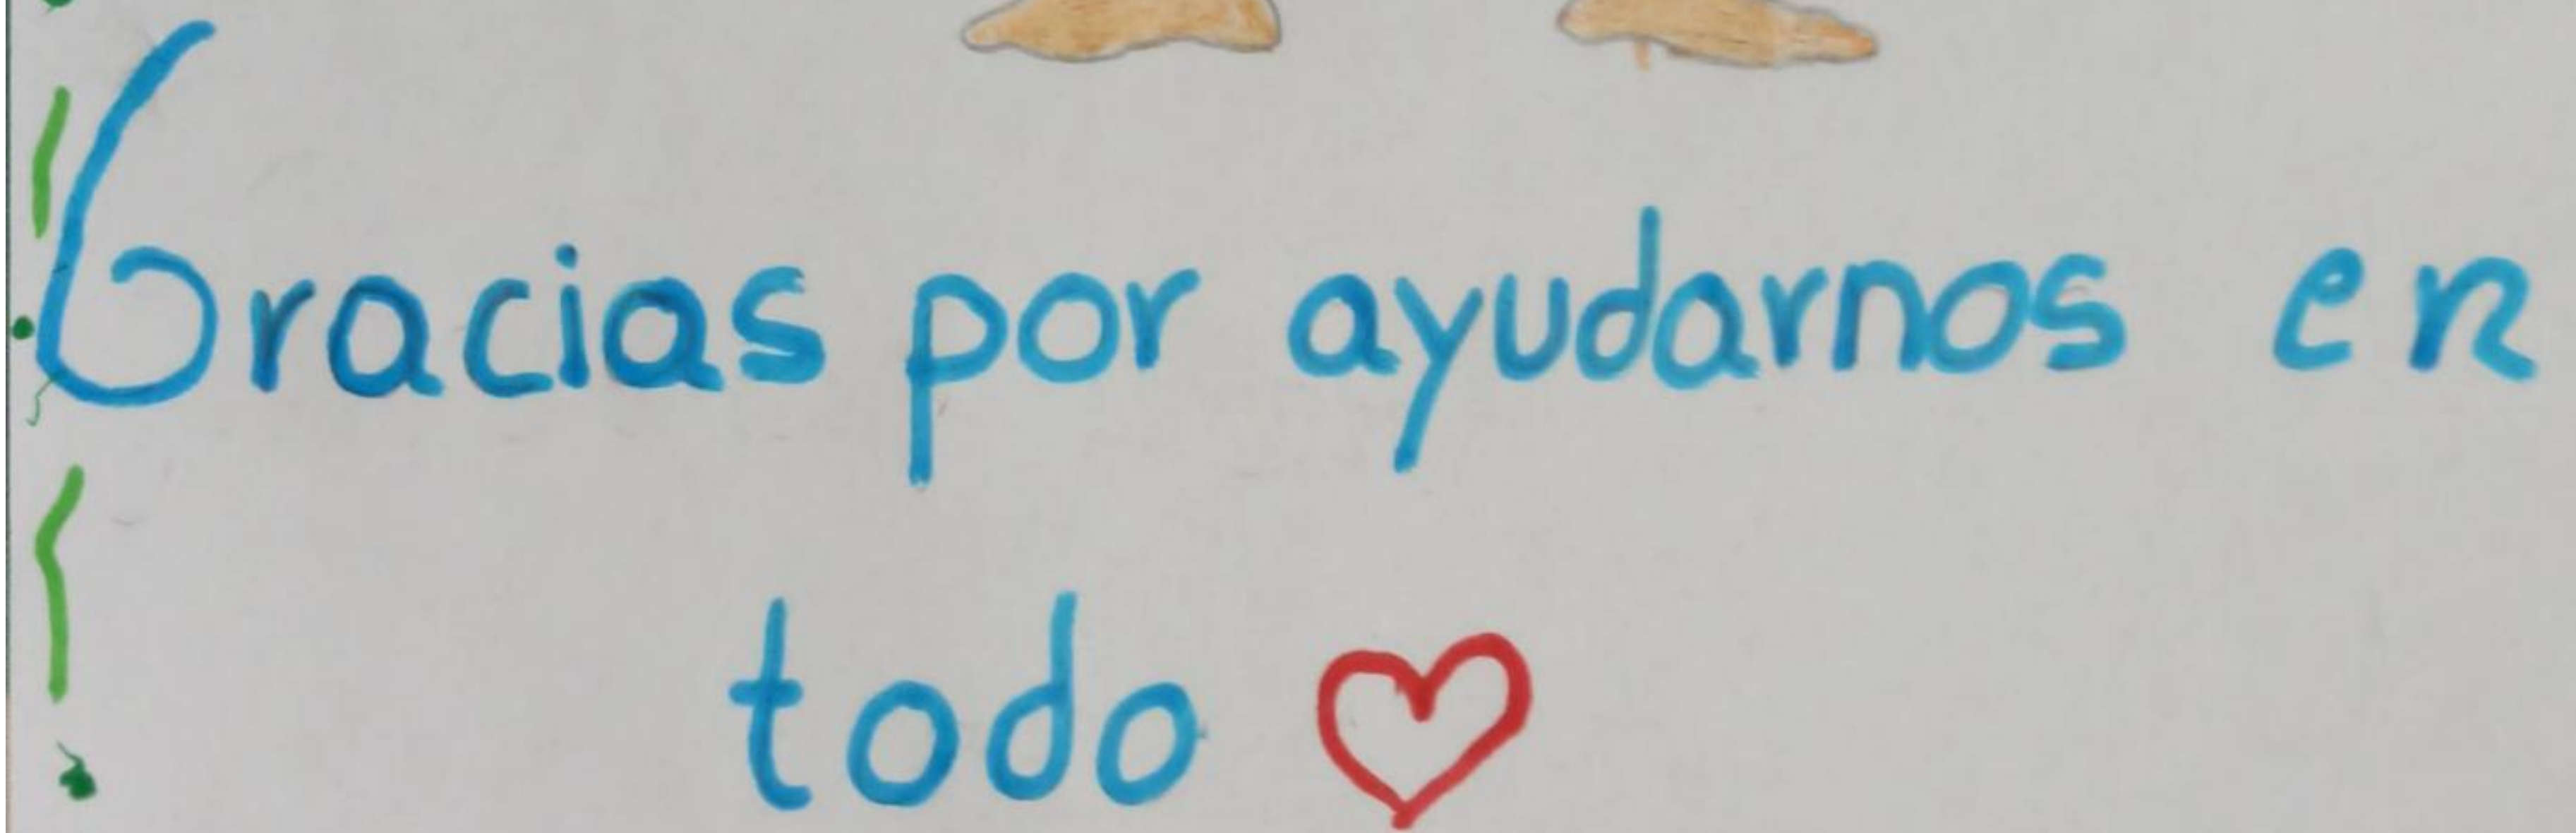 Gracias por ayudarnos en
todo ♡